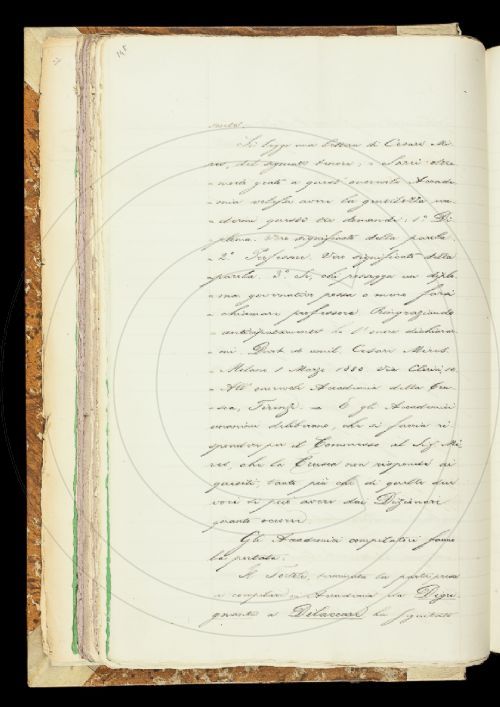 145
mente.
Si legge una lettera di Cesare Mi-
res, del seguente tenore: « Sarei oltre-
« modo grato a questa onorevole Accade-
« mia volesse avere la gentilezza
queste tre domande: 1.ª Di-
ploma. Vero significato della parola.
« 2.ª Professore. Vero significato della
« parola. 3.ª Se, chi possegga un diplo-
« ma governativo possa o meno farsi
« chiamare professore. Ringraziando
« anticipatamente ho l'onore dichiarar-
« mi. Dev.mo ed umil. Cesare Mires.
« Milano 1 Marzo 1880. Via
« All' onorevole Accademia della Cru-
« sca, Firenze. » E gli Accademici
unanimi deliberano, che si faccia ri-
spondere per il Commesso al Sig. Mi-
res, che la Crusca non risponde ai
quesiti, tanto più che di quelle due
voci si può avere dai Dizionari
quanto occorre.
Gli Accademici compilatori fanno
la portata.
Il Tortoli, terminata la parte presa
a compilare in Accademia da Digri-
gnante a Dilaccare ha seguitato